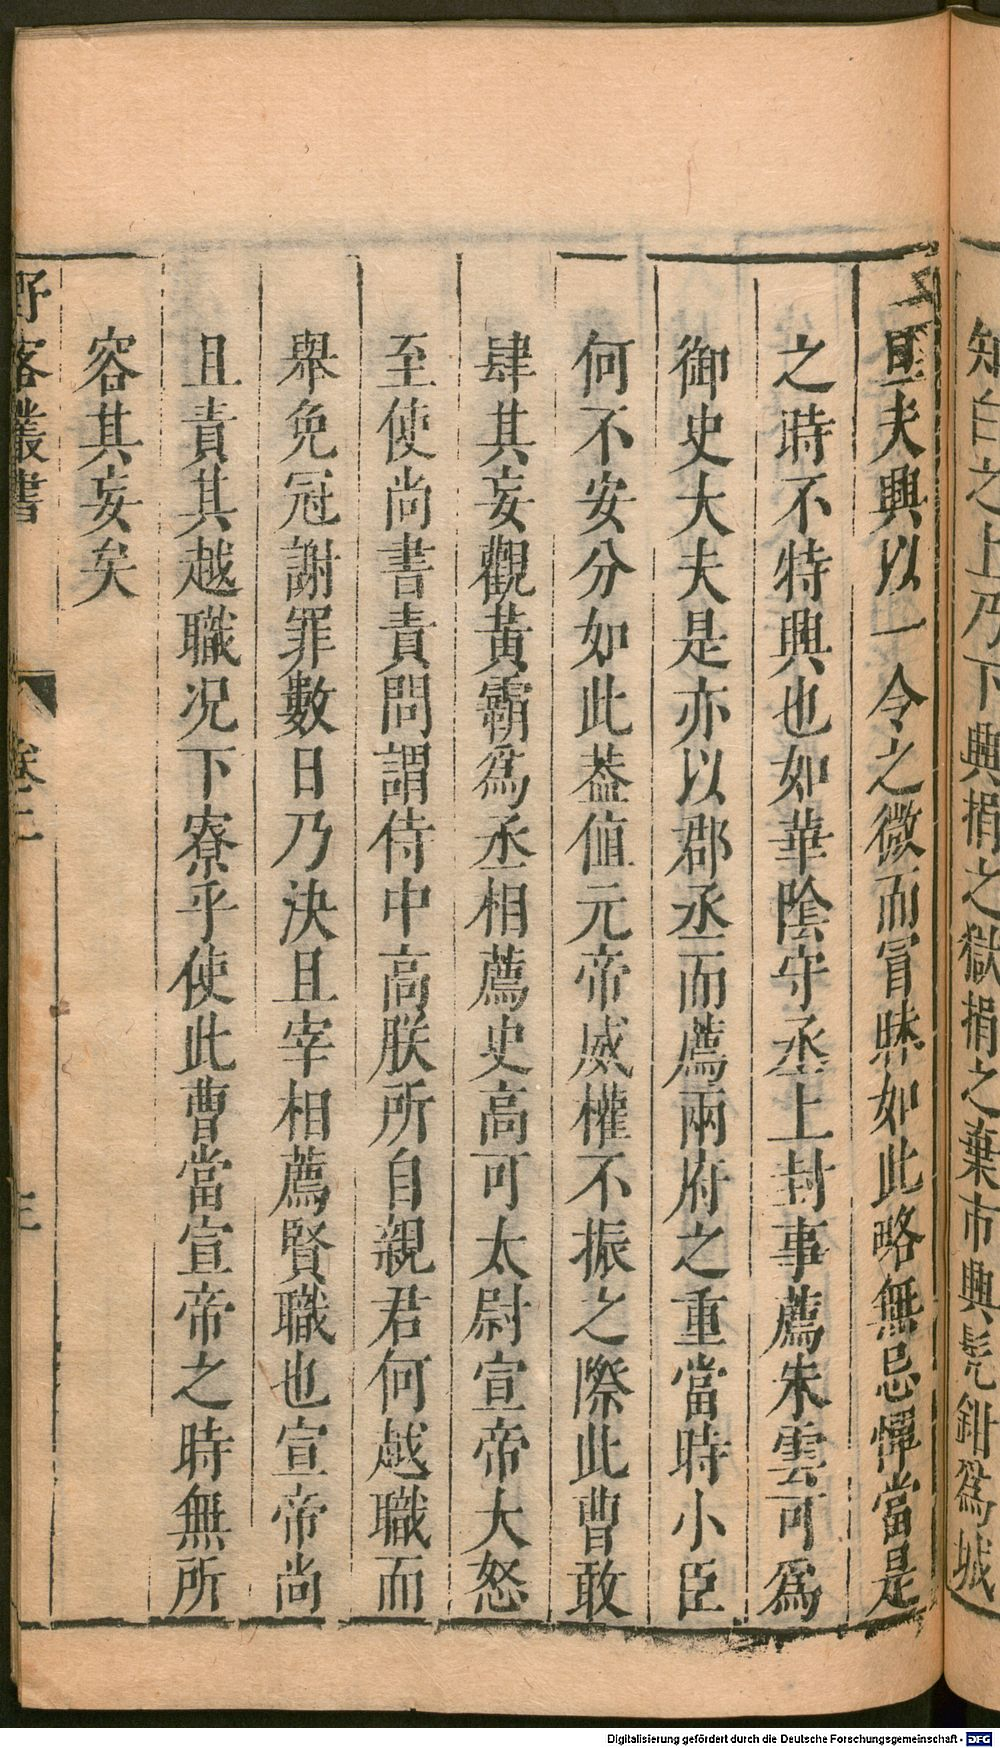 知白之上乃下興捐之獄捐之棄市興髠鉗爲城
旦夫興以一令之微而冒昧如此略無忌憚當是
之時不特興也如華陰守丞上封事薦朱雲可爲
御史大夫是亦以郡丞而薦兩府之重當時小臣
何不安分如此葢值元帝威權不振之際此曹敢
肆其妄觀黃霸爲丞相薦史高可太尉宣帝大怒
至使尚書責問謂侍中高朕所自親君何越職而
舉免冠謝罪數日乃決且宰相薦賢職也宣帝尚
且責其越職况下寮乎使此曹當宣帝之時無所
容其妄矣
野客叢書 卷二
Digitalisierung gefördert durch die Deutsche Forschungsgemeinschaft - DFG